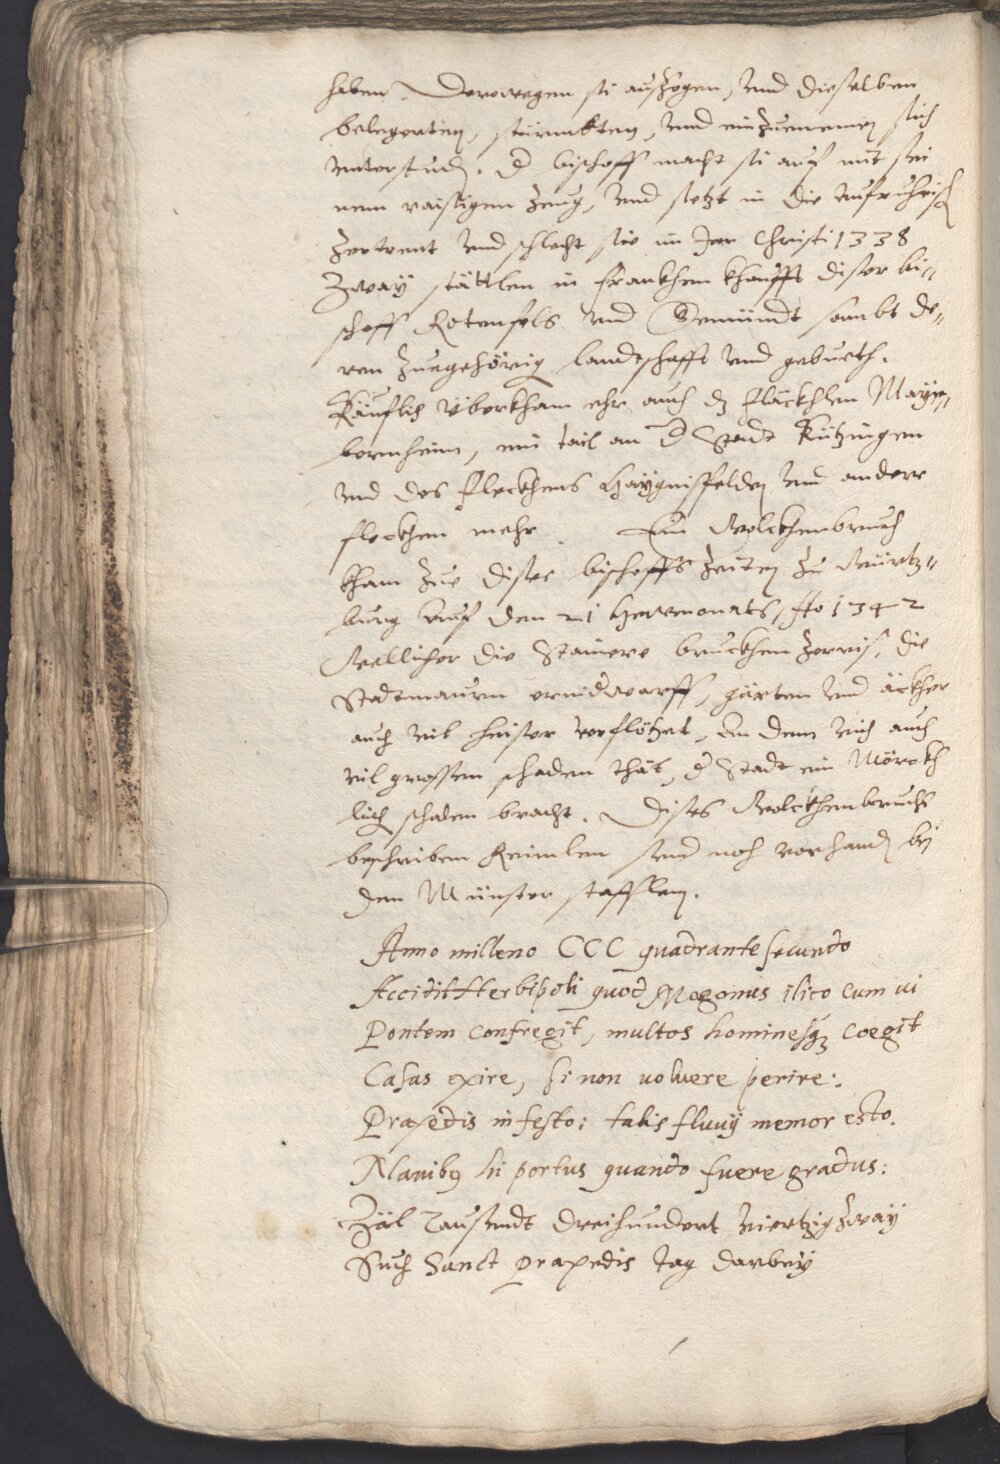 haben. Derowegen si auszogen, vnd dieselben
belegerten, stürmbten, vnd einzuenemen sich
vnterstunden. d bischoff macht si auf mit sei
nem raisigen Zeug, vnd setzt in die aufruhrisch
Zertrent vnd schlecht sie im Jar Christi 1338
Zway stättlen in Frankhen khaufft diser bi-
schoff Rotenfels vnd Gemündt sambt de-
ren zuegehörig landtschafft vnd gebueth.
Käuflich überkham ehr auch dz fläckhlen Mayn-
bernheim, ein tail an d Stadt Kitzingen
vnd des fleckhens Haÿgnisfelden vnd andere
fleckhen mehr. Ein Wolckhenbruch
kham zue dises bischoffs zeiten zu Würtz-
burg auf den 21 Hewmonats, Ao 1342
Wellicher die Stainere bruckhen zerris, die
Stadtmaurn ernidwarff, gärten vnd äckher
auch vil heuser verflötzet, an dem vich auch
vil grossen schaden thät, d Stadt ein Mörckh
lich schaden bracht. Dises Wolckhenbruchs
beschriben Reimlen seind noch vorhanden bei
den Münster stafflen.
Anno milleno CCC quadrante secundo
Accidit Herbipoli quod Mogonus ilico cum ui
Pontem confregit, multos hominesqz coegit
Casas exire, si non uoluere perire:.
Praxedis in festo: talis fluuij memor esto.
Manibq hi portus quando fuere gradus:
Zäl Tausendt dreihundert viertzig zwaÿ
Such Sanct Praxedis tag darbeÿ